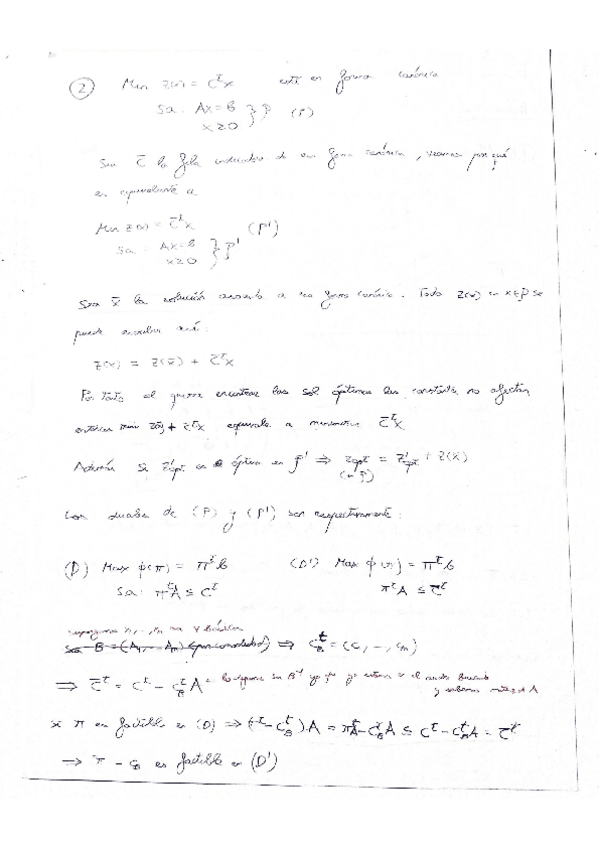 2 Min z(x) = C^t x está en forma canónica
Sa: Ax=b } P (P)
x≥0
Sea c̄ la fila de una forma canónica, veamos por qué
es equivalente a
Min z(x) = c̄^t x (P')
Sa: Ax=b } P'
x≥0
Sea x̄ la solución a forma canónica. Todo z(x) en x∈P se
puede escribir así:
z(x) = z(x̄) + c̄^t x
Por tanto al querer encontrar las sol óptimas las constantes no afectan
entonces min z(x̄) + c̄^t x equivale a minimizar c̄^t x
Además si z'opt. es óptimo en P' ⇒ zopt = z'opt + z(x̄)
(en P)
Los duales de (P) y (P') son respectivamente:
(D) Max φ(π) = π^t b (D') Max φ(π) = π^t b
Sa: π^t A ≤ C^t π^t A ≤ c̄^t
x1, -, xm son V básicas
Sea B = (A1, - Am) (por comodidad) ⇒ c_B^t = (c1, -, cm)
⇒ c̄^t = c^t - c_B^t A = B^-1 ya que ya
y A
si π es factible en (D) ⇒ (π^t - c_B^t) A = π^t A - c_B^t A ≤ c^t - c_B^t A = c̄^t
→ π - c_B es factible en (D')